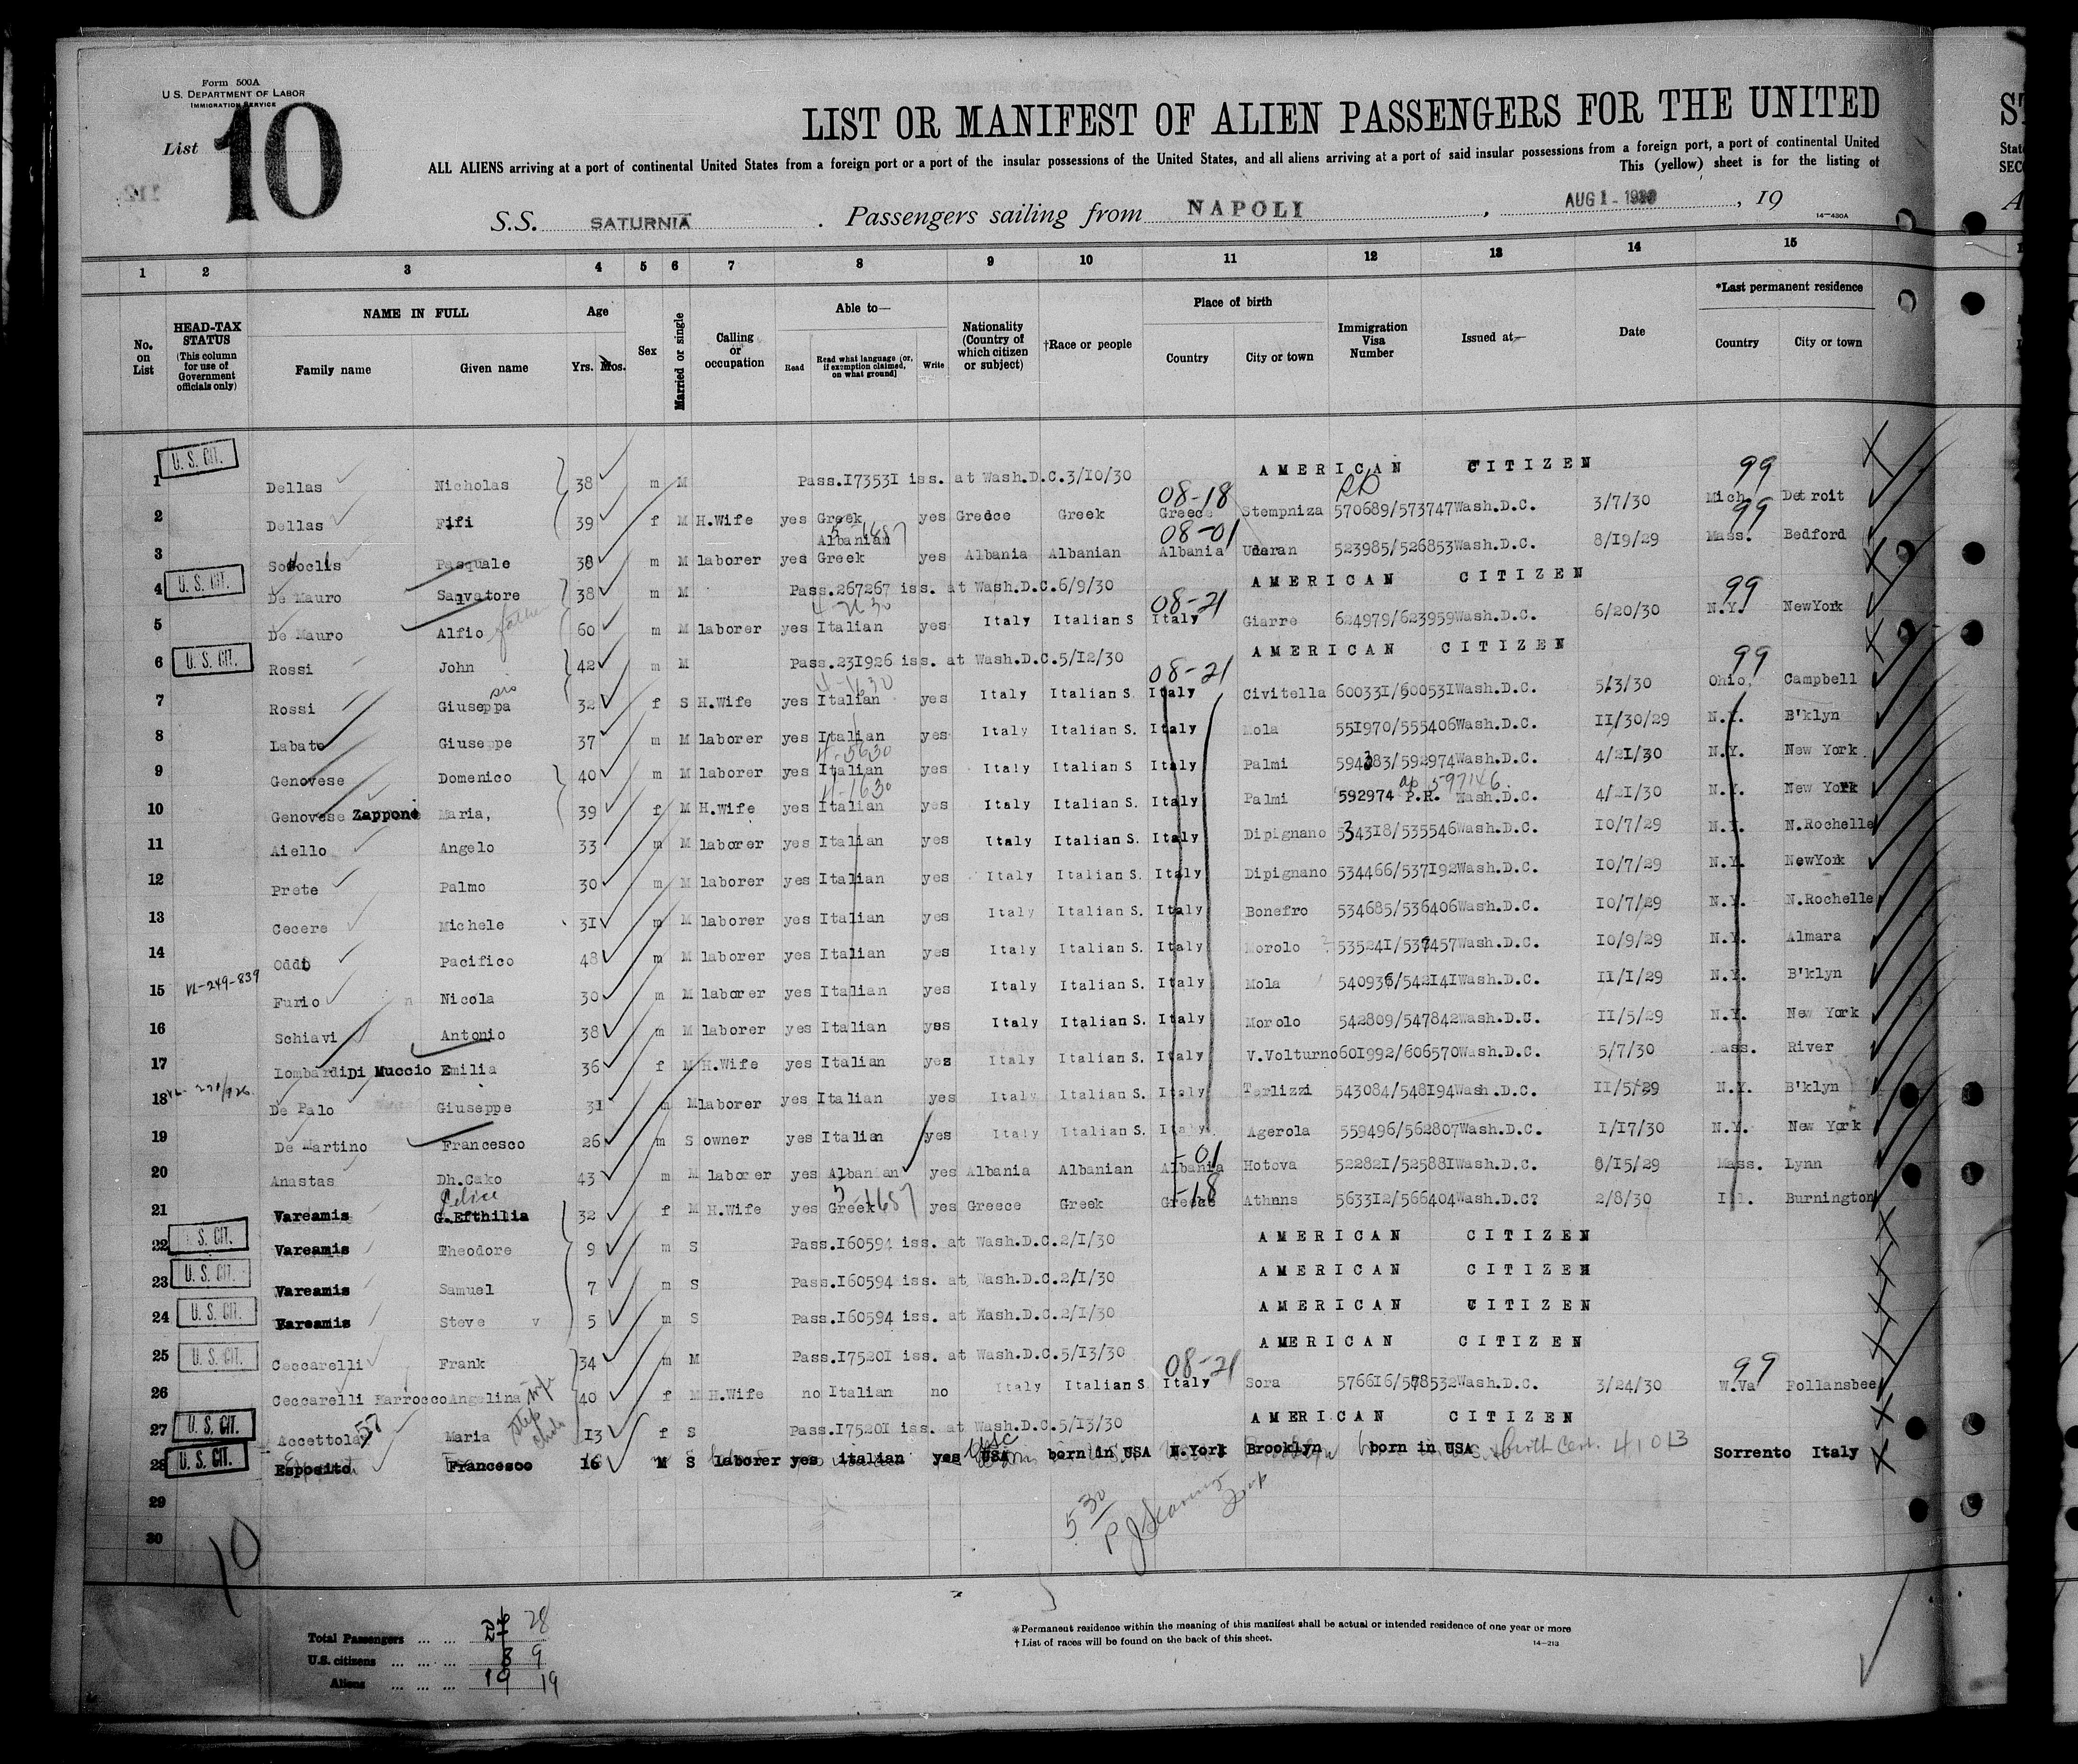 Form 500A
U.S. DEPARTMENT OF LABOR
IMMIGRATION SERVICE
List 10
LIST OR MANIFEST OF ALIEN PASSENGERS FOR THE UNITED
ALL ALIENS arriving at a port of continental United States from a foreign port or a port of the insular possessions of the United States, and all aliens arriving at a port of said insular possessions from a foreign port, a port of continental United
This (yellow) sheet is for the listing of
S.S. SATURNIA . Passengers sailing from NAPOLI , AUG 1 - 1930 , 19
14-430A
1 2 3 4 5 6 7 8 9 10 11 12 13 14 15
No. on List
HEAD-TAX STATUS (This column for use of Government officials only)
NAME IN FULL
Family name Given name
Age
Yrs. Mos.
Sex
Married or single
Calling or occupation
Able to—
Read
Read what language (or, if exemption claimed, on what ground)
Write
Nationality (Country of which citizen or subject)
†Race or people
Place of birth
Country City or town
Immigration Visa Number
Issued at—
Date
*Last permanent residence
Country City or town
1 U. S. CIT. Dellas Nicholas 38 m M Pass.173531 iss. at Wash.D.C.3/10/30 AMERICAN CITIZEN 99
2 Dellas Fifi 39 f M H.Wife yes Greek yes Greece Greek 08-18 Greece Stempniza 570689/573747 Wash.D.C. 3/7/30 Mich. Detroit 99
3 Pasquale 38 m M laborer yes Albanian Greek yes Albania Albanian 08-01 Albania 523985/526853 Wash.D.C. 8/19/29 Mass. Bedford
4 U. S. CIT. De Mauro Salvatore 38 m M Pass.267267 iss. at Wash.D.C.6/9/30 AMERICAN CITIZEN 99
5 De Mauro Alfio father 60 m M laborer yes Italian yes Italy Italian S 08-21 Italy Giarre 624979/623959 Wash.D.C. 6/20/30 N.Y. NewYork
6 U. S. CIT. Rossi John 42 m M Pass.231926 iss. at Wash.D.C.5/12/30 AMERICAN CITIZEN 99
7 Rossi Giuseppa sis 32 f S H.Wife yes Italian yes Italy Italian S. 08-21 Italy Civitella 600331/600531 Wash.D.C. 5/3/30 Ohio, Campbell
8 Labate Giuseppe 37 m M laborer yes Italian yes Italy Italian S. Italy Mola 551970/555406 Wash.D.C. 11/30/29 N.Y. B'klyn
9 Genovese Domenico 40 m M laborer yes Italian yes Italy Italian S Italy Palmi 594383/592974 Wash.D.C. 4/21/30 N.Y. New York
10 Genovese Zappone Maria, 39 f M H.Wife yes Italian yes Italy Italian S. Italy Palmi 592974 P.R. 597146 Wash.D.C. 4/21/30 N.Y. New York
11 Aiello Angelo 33 m M laborer yes Italian yes Italy Italian S. Italy Dipignano 534318/535546 Wash.D.C. 10/7/29 N.Y. N.Rochelle
12 Prete Palmo 30 m M laborer yes Italian yes Italy Italian S. Italy Dipignano 534466/537192 Wash.D.C. 10/7/29 N.Y. NewYork
13 Cecere Michele 31 m M laborer yes Italian yes Italy Italian S. Italy Bonefro 534685/536406 Wash.D.C. 10/7/29 N.Y. N.Rochelle
14 Oddi Pacifico 48 m M laborer yes Italian yes Italy Italian S. Italy Morolo 535241/537457 Wash.D.C. 10/9/29 N.Y. Almara
15 VL-249-839 Furio Nicola 30 m M laborer yes Italian yes Italy Italian S. Italy Mola 540936/542141 Wash.D.C. 11/1/29 N.Y. B'klyn
16 Schiavi Antonio 38 m M laborer yes Italian yes Italy Italian S. Italy Morolo 542809/547842 Wash.D.C. 11/5/29 N.Y. New York
17 Lombardi Di Muccio Emilia 36 f M H.Wife yes Italian yes Italy Italian S. Italy V.Volturno 601992/606570 Wash.D.C. 5/7/30 Mass. River
18 De Palo Giuseppe 31 m M laborer yes Italian yes Italy Italian S. Italy Terlizzi 543084/548194 Wash.D.C. 11/5/29 N.Y. B'klyn
19 De Martino Francesco 26 m S owner yes Italian yes Italy Italian S. Italy Agerola 559496/562807 Wash.D.C. 1/17/30 N.Y. New York
20 Anastas Dh.Cako 43 m M laborer yes Albanian yes Albania Albanian -01 Albania Hotova 522821/525881 Wash.D.C. 8/15/29 Mass. Lynn
21 Vareamis G.Efthilia 32 f M H.Wife yes Greek yes Greece Greek -18 Greece Athnns 563312/566404 Wash.D.C? 2/8/30 Ill. Burnington
22 U. S. CIT. Vareamis Theodore 9 m S Pass.160594 iss. at Wash.D.C.2/1/30 AMERICAN CITIZEN
23 U. S. CIT. Vareamis Samuel 7 m S Pass.160594 iss. at Wash.D.C.2/1/30 AMERICAN CITIZEN
24 U. S. CIT. Vareamis Steve 5 m S Pass.160594 iss. at Wash.D.C.2/1/30 AMERICAN CITIZEN
25 U. S. CIT. Ceccarelli Frank 34 m M Pass.175201 iss. at Wash.D.C.5/13/30 AMERICAN CITIZEN 99
26 Ceccarelli Farrocco Angelina wife 40 f M H.Wife no Italian no Italy Italian S 08-21 Italy Sora 576616/578532 Wash.D.C. 3/24/30 W.Va Follansbee
27 U. S. CIT. Accettola Maria step child 13 f S Pass.175201 iss. at Wash.D.C.5/13/30 AMERICAN CITIZEN
28 U. S. CIT. Esposito Francesco 16 M S laborer yes italian yes USA born in USA N.York Brooklyn born in USA birth Cert. 41013 Sorrento Italy
29
30
10
5 30
Total Passengers ... ... 27 28
U.S. citizens ... ... ... 8 9
Aliens ... ... ... 19 19
*Permanent residence within the meaning of this manifest shall be actual or intended residence of one year or more
† List of races will be found on the back of this sheet.
14-213